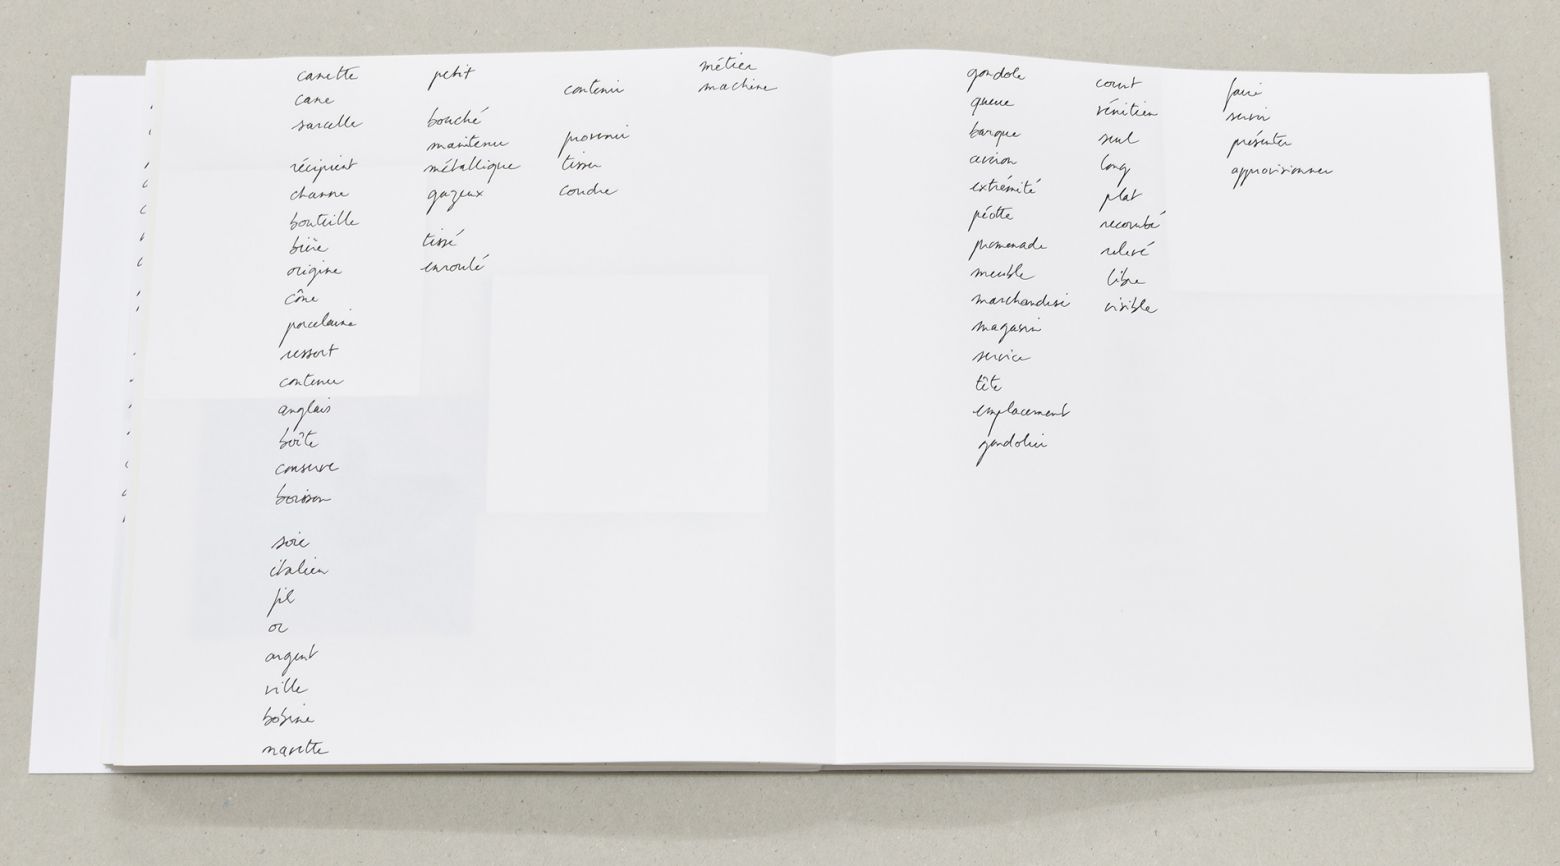 canette
cane
sarcelle
récipient
channe
bouteille
bière
origine
cône
porcelaine
ressort
contenu
anglais
boîte
conserve
boisson
soie
italien
fil
or
argent
ville
bobine
navette
petit
bouché
maintenu
métallique
gazeux
tissé
enroulé
contenir
provenir
tisser
coudre
métier
machine
gondole
queue
barque
aviron
extrémité
péotte
promenade
meuble
marchandise
magasin
service
tête
emplacement
gondolier
court
vénitien
seul
long
plat
recourbé
relevé
libre
visible
faire
servir
présenter
approvisionner